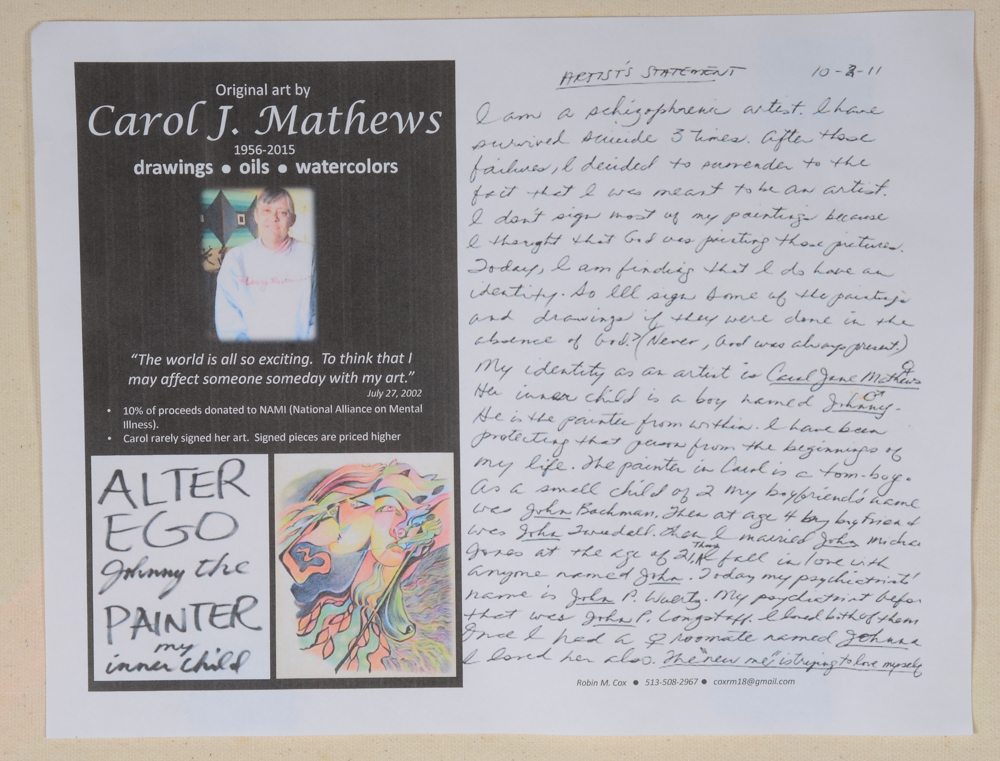 Original art by
Carol J. Mathews
1956-2015
drawings ● oils ● watercolors
“The world is all so exciting.  To think that I
may affect someone someday with my art.”
July 27, 2002
• 10% of proceeds donated to NAMI (National Alliance on Mental
Illness).
• Carol rarely signed her art.  Signed pieces are priced higher
ALTER
EGO
Johnny the
PAINTER
my
inner child
ARTIST'S STATEMENT 10-2-11
I am a schizophrenic artist. I have
survived suicide 3 times. After those
failures, I decided to surrender to the
fact that I was meant to be an artist.
I don't sign most of my paintings because
I thought that God was painting those pictures.
Today, I am finding that I do have an
identity. So I'll sign some of the paintings
and drawings if they were done in the
absence of God.? (Never, God was always present)
My identity as an artist is Carol Jane Mathews ♀
Her inner child is a boy named Johnny ♂.
He is the painter from within. I have been
protecting that person from the beginnings of
my life. The painter in Carol is a tom-boy.
As a small child of 2 my boyfriend's name
was John Bachman. Then at age 4 my boyfriend
was John Twaddell. Then I married John Michael
Jones at the age of 21. Then I fall in love with
anyone named John. Today my psychiatrists'
name is John P. Wuertz. My psychiatrist before
that was John P. Longstaff. I loved both of them
And I had a ♀ roomate named Johnna
I loved her also. The "new me" is trying to love myself
Robin M. Cox ● 513-508-2967 ● coxrm18@gmail.com